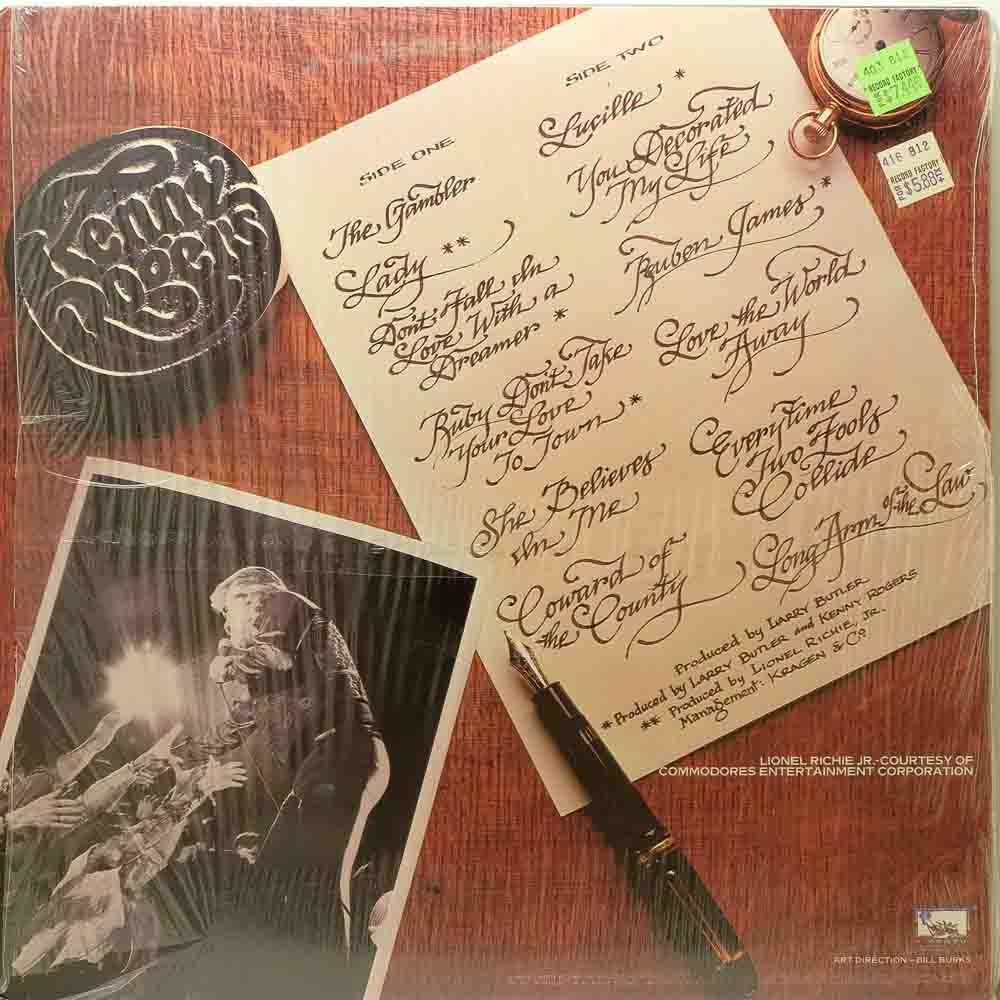 Kenny
Rogers
SIDE ONE
The Gambler
Lady **
Don't Fall In
Love With a
Dreamer *
Ruby Don't Take
Your Love
To Town *
She Believes
In Me
Coward of
the County
SIDE TWO
Lucille *
You Decorated
My Life
Reuben James *
Love the World
Away
Everytime
Two Fools
Collide
Long Arm of the Law
Produced by LARRY BUTLER
*Produced by LARRY BUTLER and KENNY ROGERS
** Produced by LIONEL RICHIE, JR.
Management: KRAGEN & CO
LIONEL RICHIE JR.-COURTESY OF
COMMODORES ENTERTAINMENT CORPORATION
403 812
RECORD FACTORY
416 812
RECORD FACTORY
$5.88
ART DIRECTION - BILL BURKS